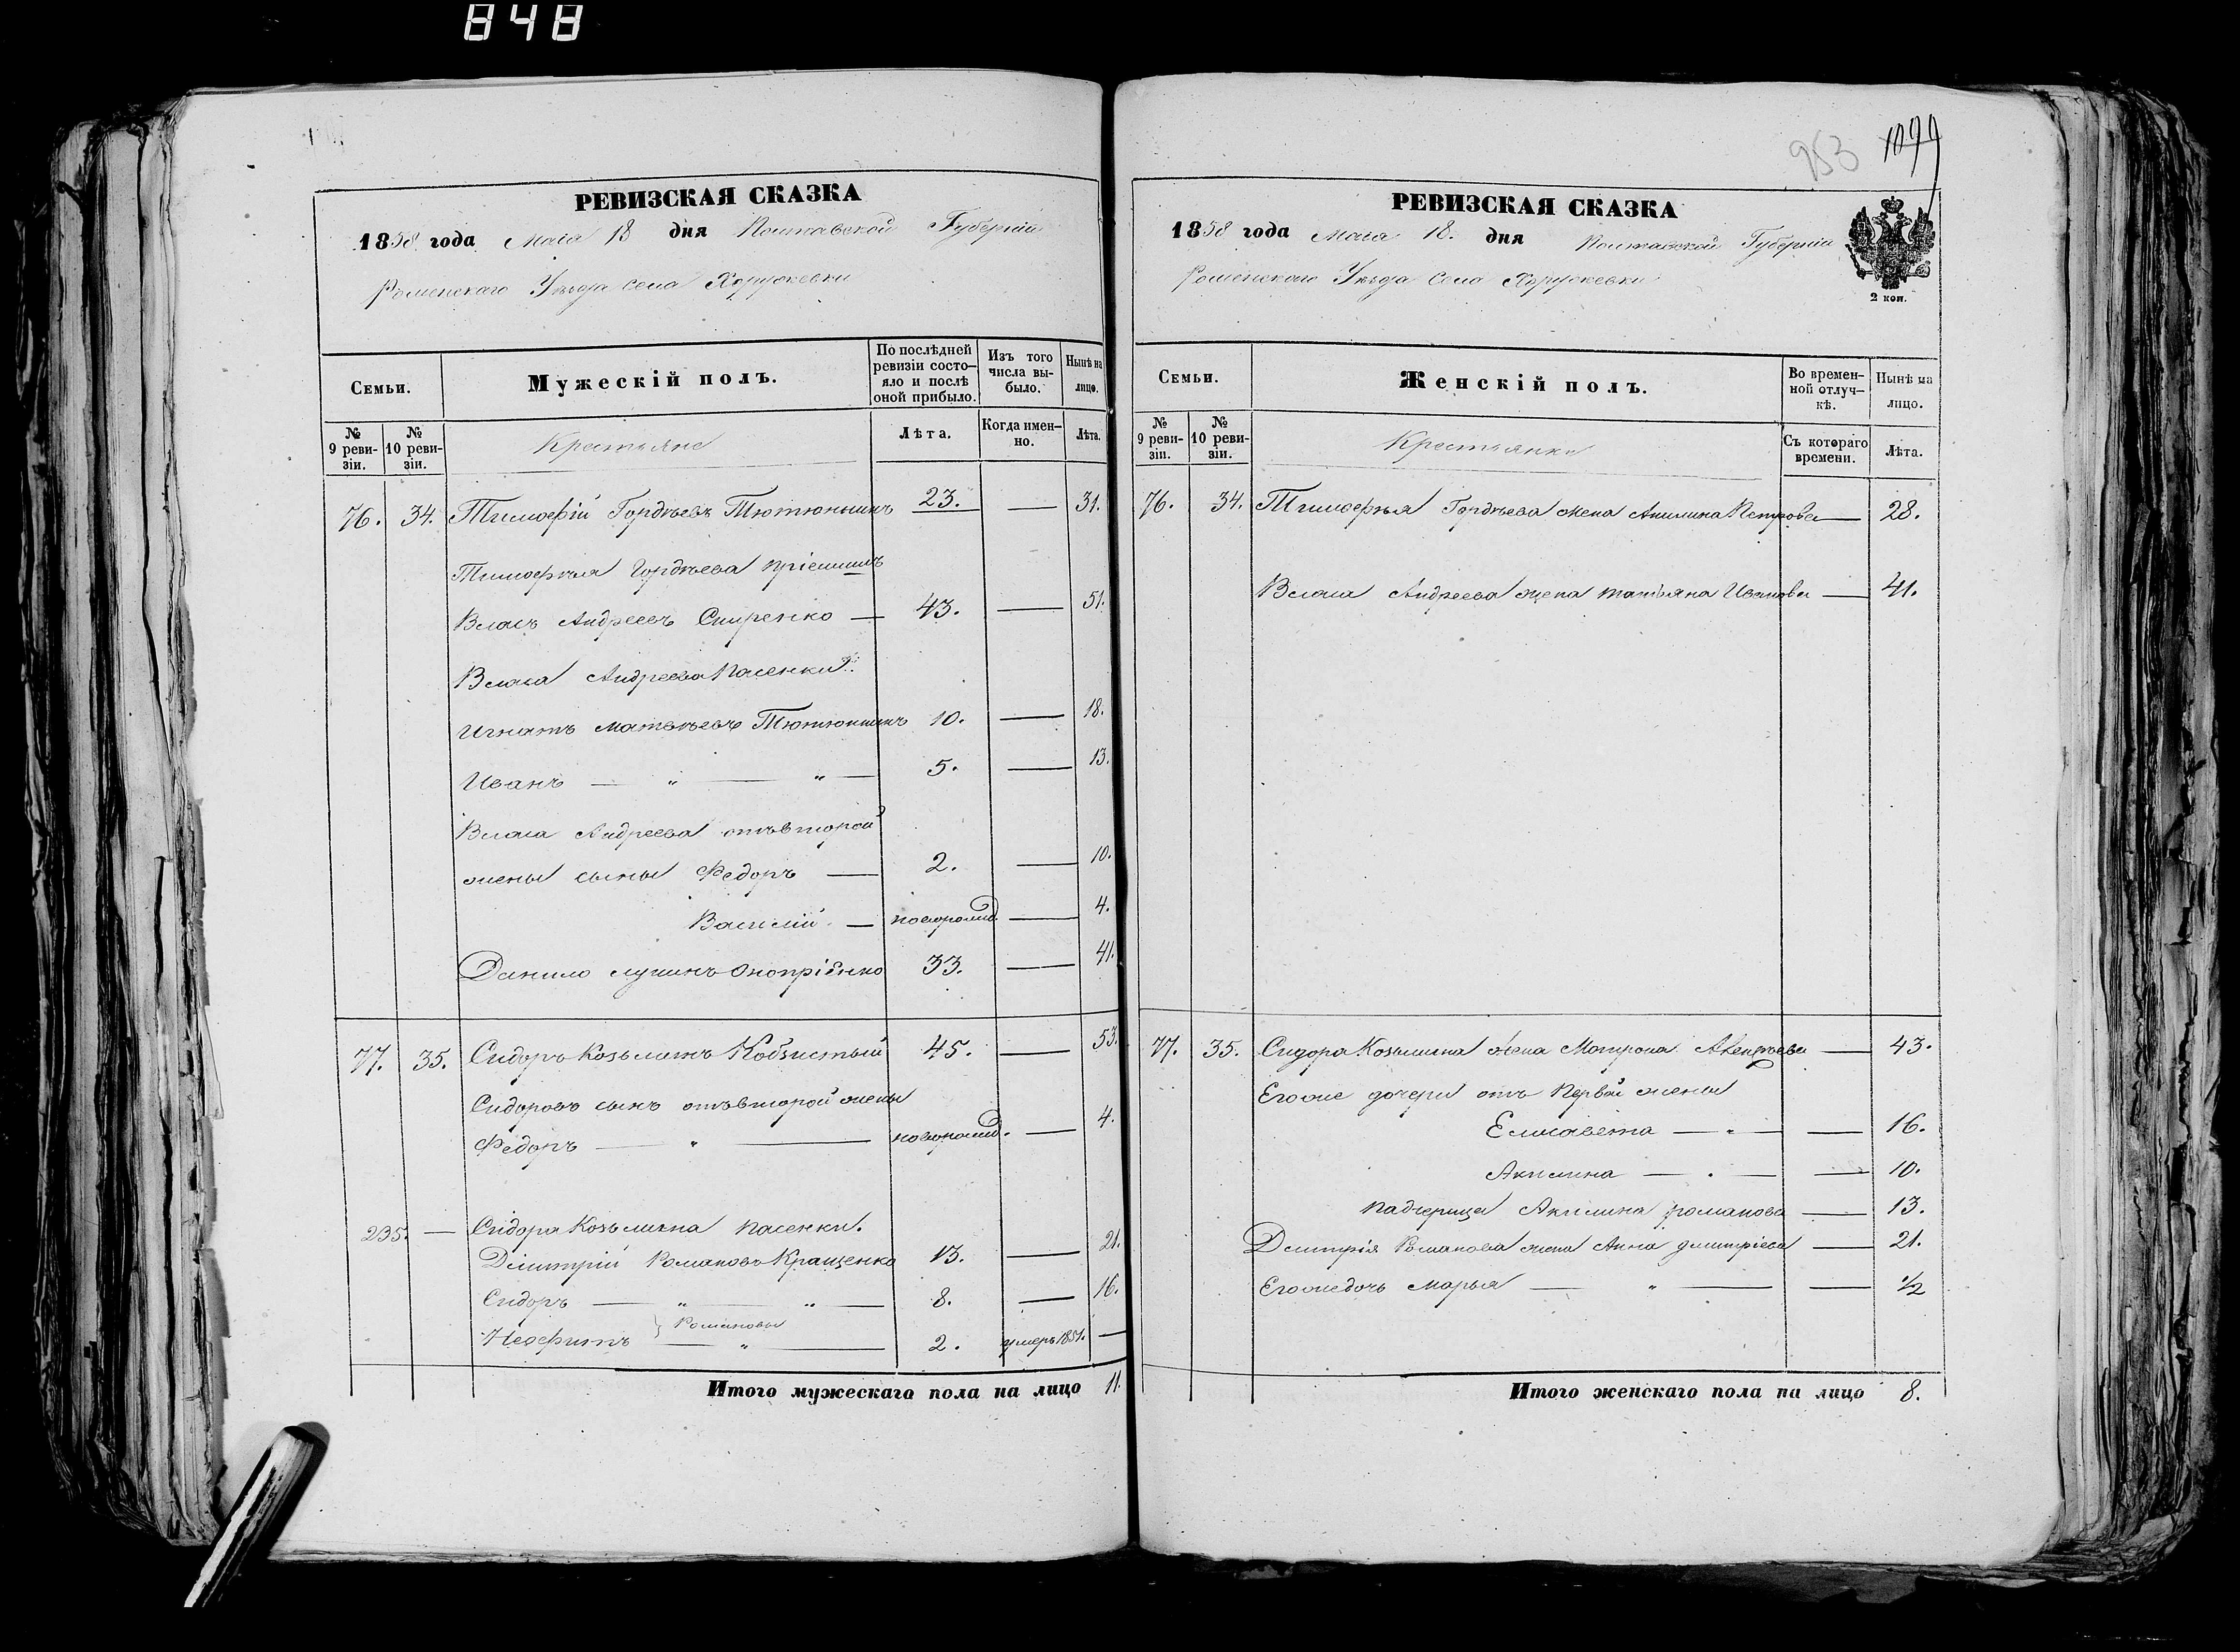 848
РЕВИЗСКАЯ СКАЗКА
1858 года Мая 18 дня Полтавской Губерніи
Роменскаго Уѣзда села Хоружевки
Семьи.
Мужескій полъ.
По послѣдней ревизіи состояло и послѣ оной прибыло.
Изъ того числа выбыло.
Нынѣ на лицо.
№ 9 ревизіи.
№ 10 ревизіи.
Крестьяне
Лѣта.
Когда именно.
Лѣта.
76. 34. Тимофій Гордѣевъ Тютюнникъ 23. — 31.
Тимофѣя Гордѣева пріемышъ
Власъ Андреевъ Спиренко — 43. — 51.
Власа Андреева Пасенки:
Игнатъ Матвѣевъ Тютюнникъ 10. — 18.
Иванъ — „ — „ — 5. — 13.
Власа Андреева отъ второй
жены сыны Федоръ — 2. — 10.
Василій — новорожд. — 4.
Данило Лукинъ Онопріенко 33. — 41.
77. 35. Сидоръ Козьминъ Кобзистый 45. — 53.
Сидоровъ сынъ отъ второй жены
Федоръ — „ — новорожд. — 4.
235. — Сидора Козьмина Пасенки.
Дімитрій Романовъ Кращенко 13. — 21.
Сидоръ — „ — „ — 8. — 16.
Романовы
Неофитъ — „ — 2. умеръ 1851. —
Итого мужескаго пола на лицо 11.
953 1099
РЕВИЗСКАЯ СКАЗКА
1858 года Мая 18. дня Полтавской Губерніи
Роменскаго Уѣзда села Хоружевки
2 коп.
Семьи.
Женскій полъ.
Во временной отлучкѣ.
Нынѣ на лицо.
№ 9 ревизіи.
№ 10 ревизіи.
Крестьянки
Съ котораго времени.
Лѣта.
76. 34. Тимофѣя Гордѣева жена Акилина Петрова — 28.
Власа Андреева жена татьяна Иванова — 41.
77. 35. Сидора Козьмина жена Мотрона — 43.
Егоже дочери отъ Первой жены
Елисавета — „ — — 16.
Акилина — . — — 10.
Падчерица Акилина романова — 13.
Дмитрія Романова жена Анна дмитріева — 21.
Егоже дочь Марья — „ — — ½
Итого женскаго пола на лицо 8.